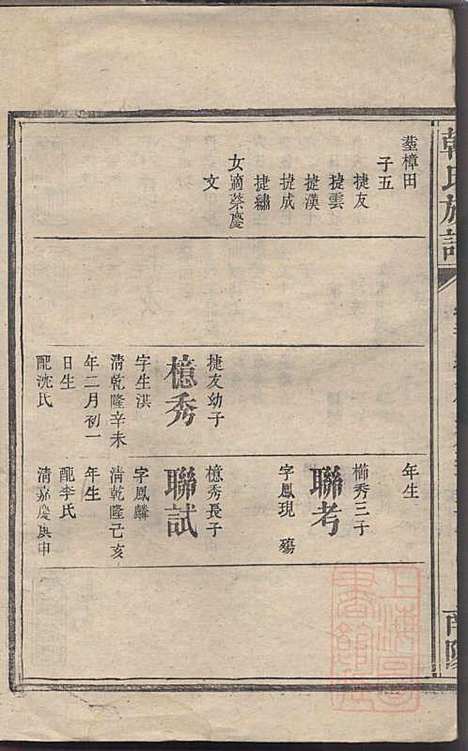 韓氏族譜
南陽
塟樟田
子五
捷友
捷雲
捷漢
捷成
捷繡
女適蔡慶
文
捷友幼子
檍秀
字生淇
清乾隆辛未
年二月初一
日生
配沈氏
年生
櫛秀三子
聯考
字鳳現 殤
檍秀長子
聯試
字鳳麟
清乾隆己亥
年生
配李氏
清嘉慶庚申
上海圖書館藏